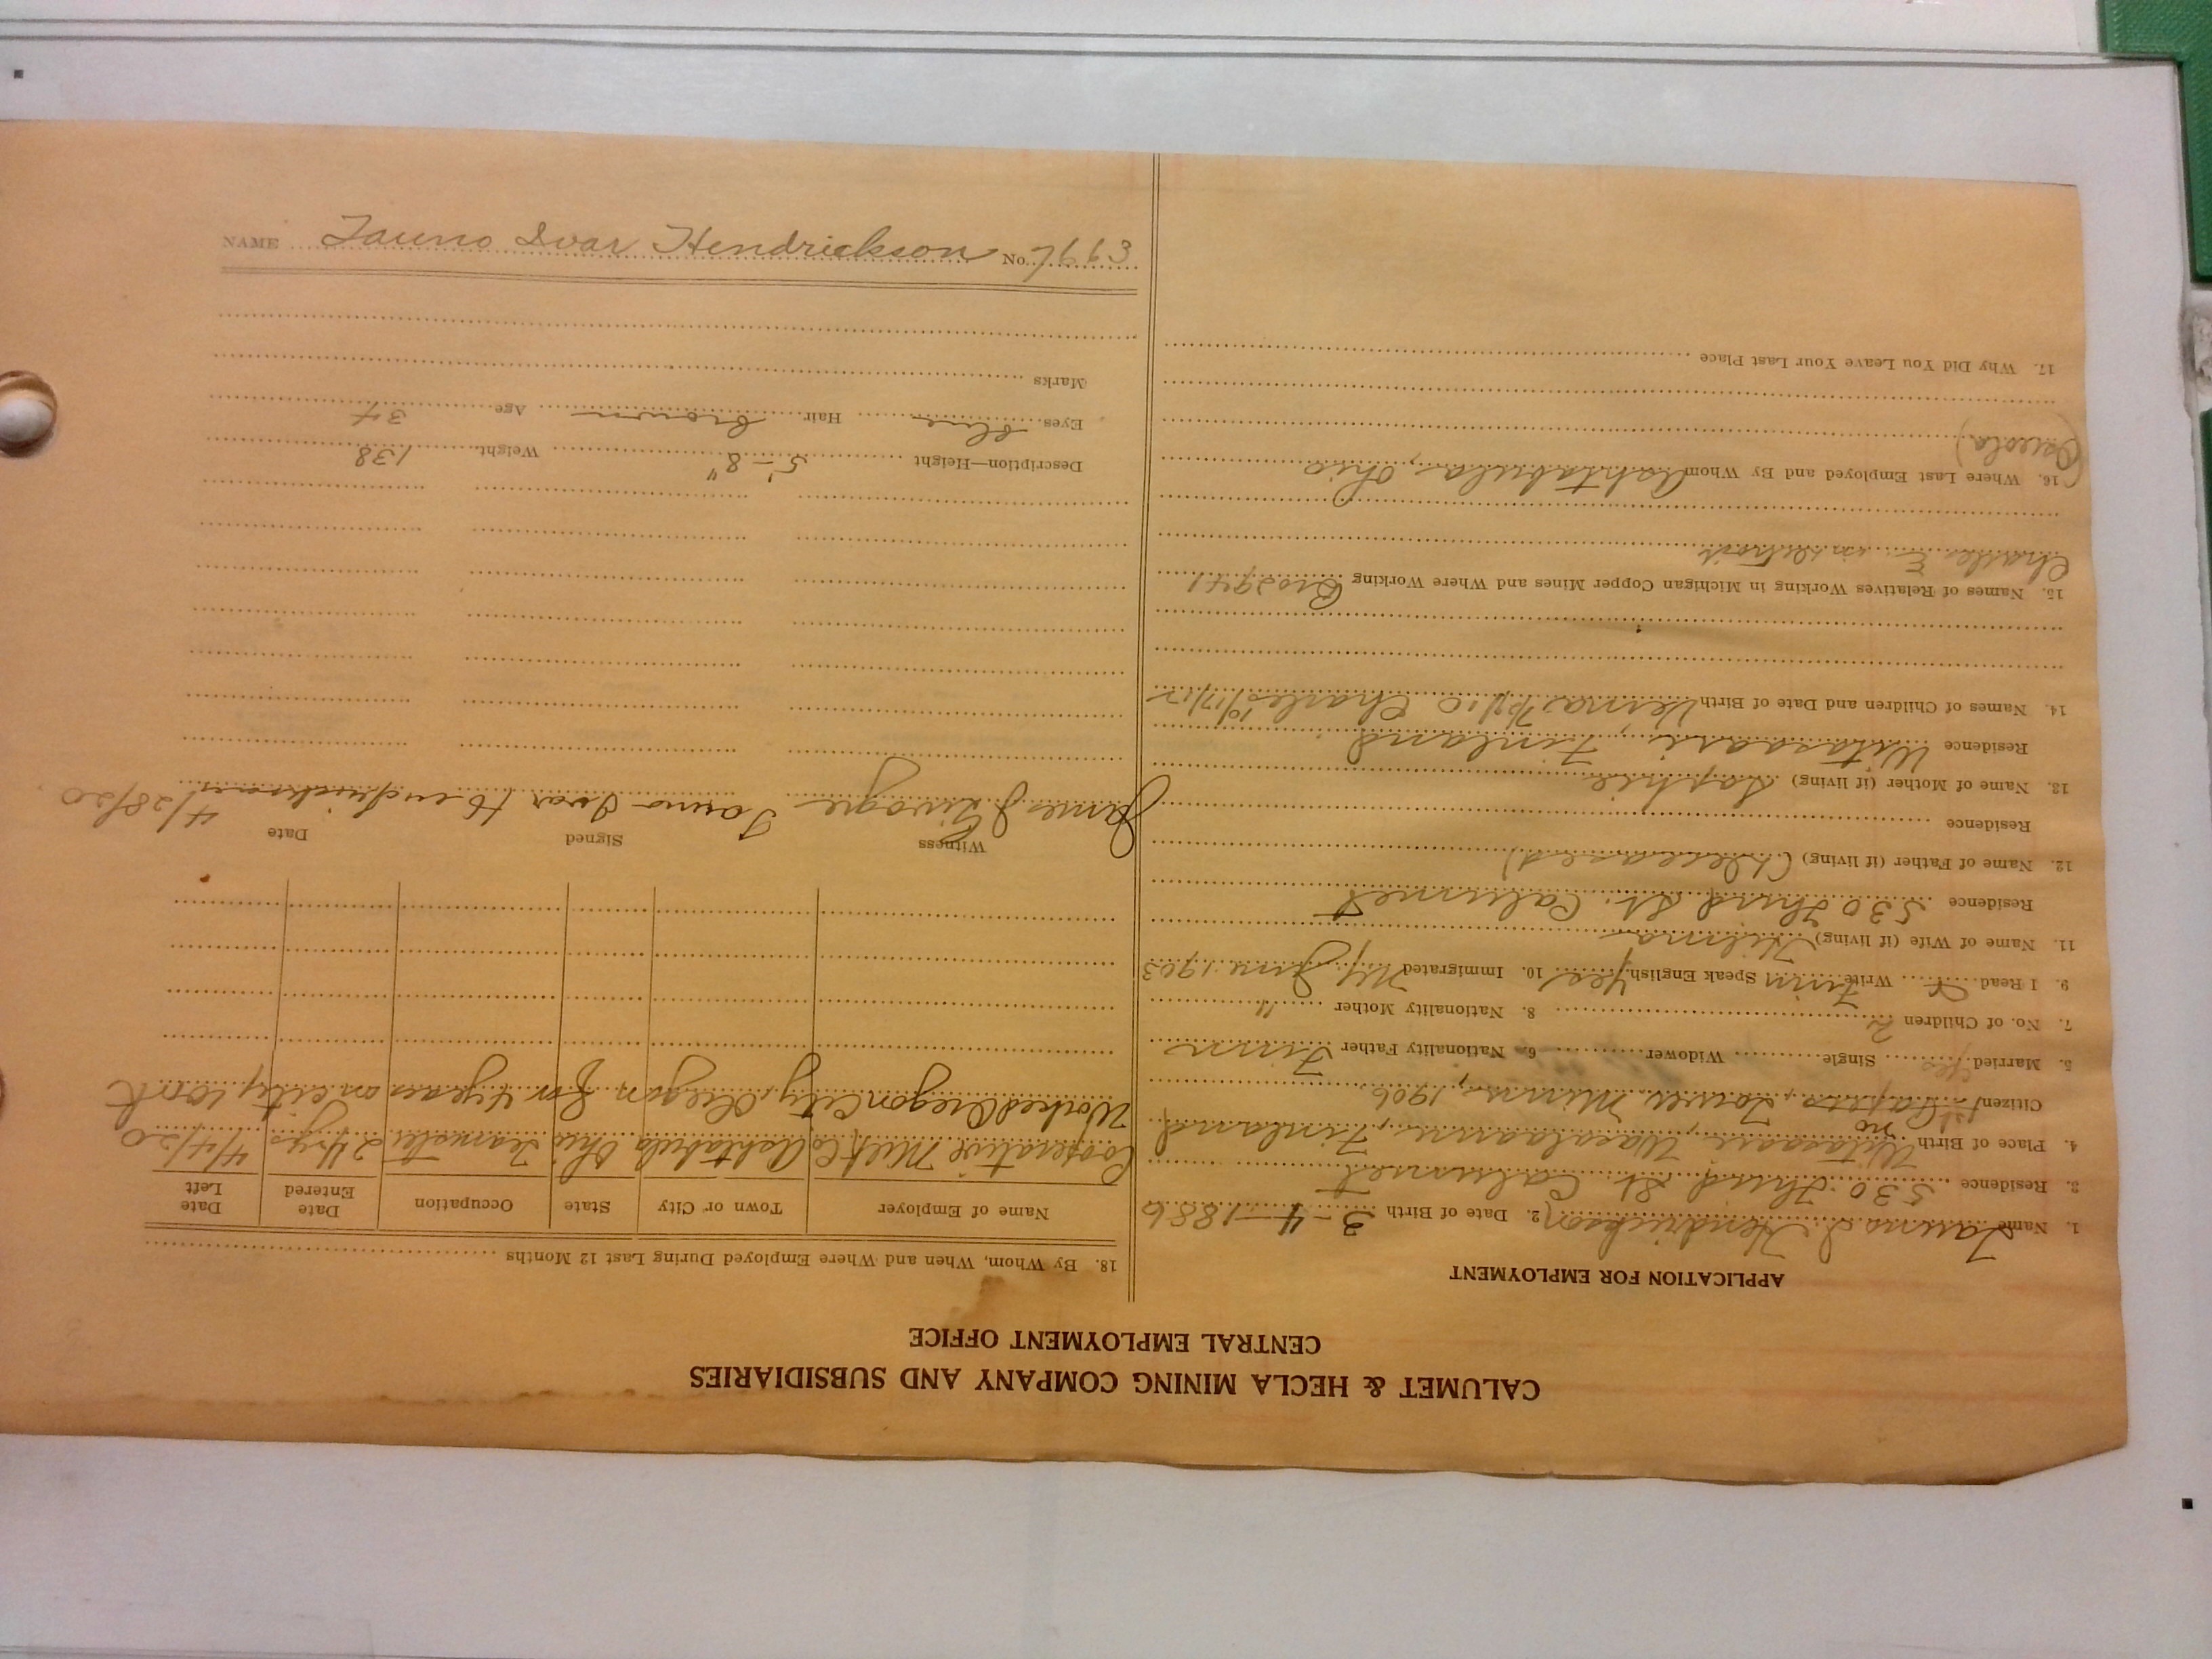 CALUMET & HECLA MINING COMPANY AND SUBSIDIARIES
CENTRAL EMPLOYMENT OFFICE
APPLICATION FOR EMPLOYMENT
1. Name Tauno I Hendrickson 2. Date of Birth 3-4-1886
3. Residence 530 Third St. Calumet
4. Place of Birth Uitasaari, Finland
Citizen 1st Papers, Tower Minn, 1906 no
5. Married Yes Single Widower 6. Nationality Father Finn
7. No. of Children 2 8. Nationality Mother "
9. I Read & Write Finn Speak English yes 10. Immigrated NY June 1903
11. Name of Wife (if living) Hilma
Residence 530 Third St. Calumet
12. Name of Father (if living) (deceased)
Residence
13. Name of Mother (if living) Sophie
Residence Uitasaari, Finland
14. Names of Children and Date of Birth Verna 7/1/10 Charles 10/17/12
15. Names of Relatives Working in Michigan Copper Mines and Where Working Bro 2941
Charlie E. in Detroit
16. Where Last Employed and By Whom Ashtabula, Ohio
(Osceola)
17. Why Did You Leave Your Last Place
18. By Whom, When and Where Employed During Last 12 Months
Name of Employer Town or City State Occupation Date Entered Date Left
Cooperative Milk Co Ashtabula Ohio Teamster 2 1/4 yrs 4/4/20
Worked Oregon City, Oregon for 4 years on city work
Witness Signed Date
James J Tauno Ivar Hendrickson 4/28/20
Description—Height 5'-8" Weight 138
Eyes blue Hair brown Age 34
Marks
NAME Tauno Ivar Hendrickson No. 7663